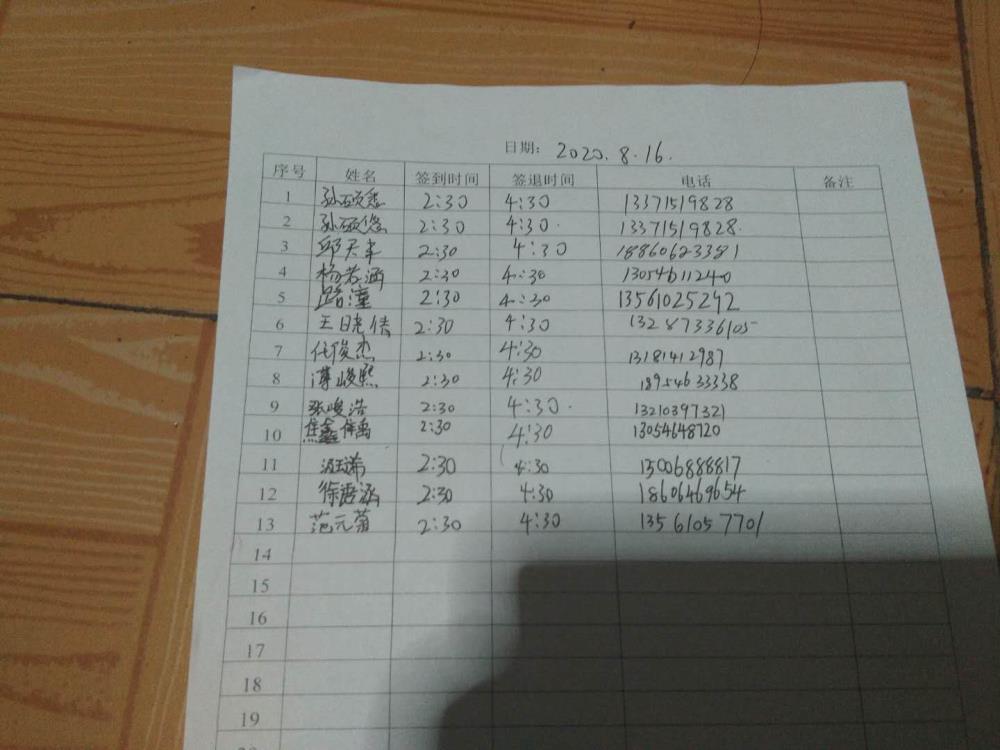 日期: 2020.8.16.
序号 姓名 签到时间 签退时间 电话 备注
1 孙硕 2:30 4:30 13371519828
2 孙硕悠 2:30 4:30 13371519828
3 邱天丰 2:30 4:30 18860623381
4 杨若涵 2:30 4:30 13054611240
5 路潼 2:30 4:30 13561025292
6 王晓倩 2:30 4:30 13287336105
7 任俊杰 2:30 4:30 13181412987
8 薄峻熙 2:30 4:30 18954633338
9 张峻浩 2:30 4:30 13210397321
10 焦鑫 2:30 4:30 13054648720
11 2:30 4:30 13006888817
12 徐语涵 2:30 4:30 18606469654
13 范元菊 2:30 4:30 13561057701
14
15
16
17
18
19